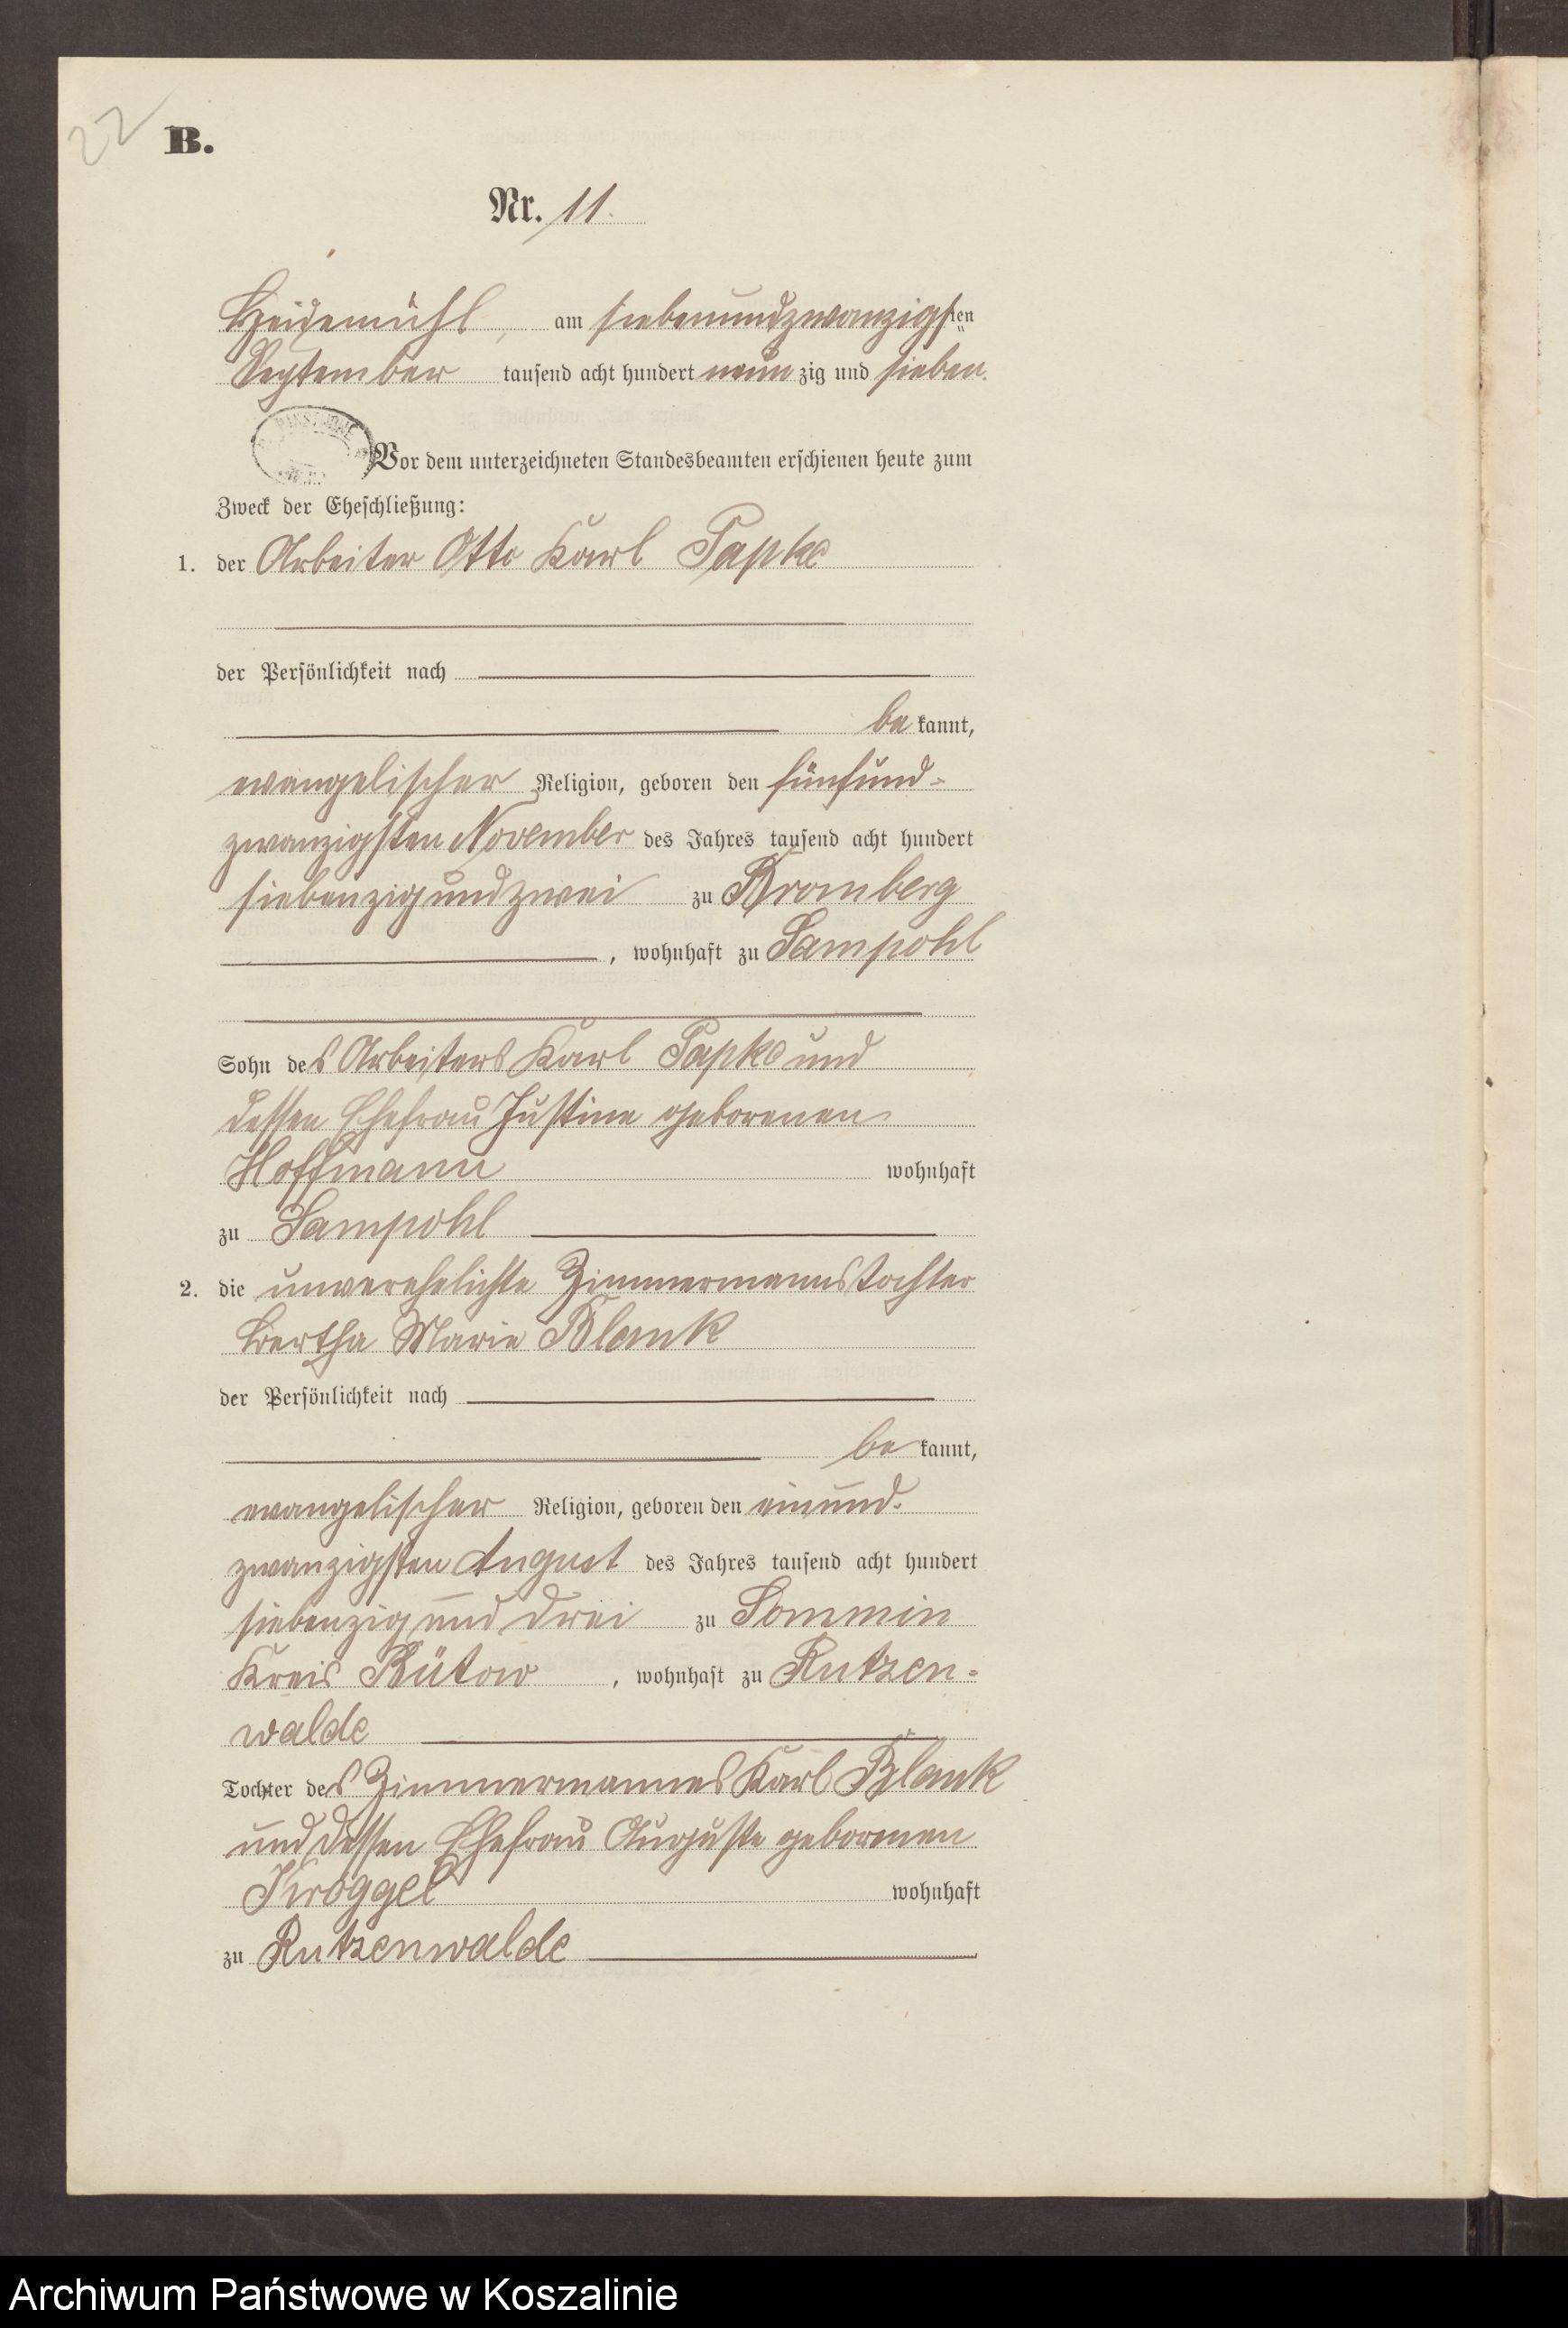 22
B.
Nr. 11.
Heidemühl, am siebenundzwanzigsten
September tausend acht hundert neunzig und sieben.
Vor dem unterzeichneten Standesbeamten erschienen heute zum
Zweck der Eheschließung:
1. der Arbeiter Otto Karl Papke
der Persönlichkeit nach
bekannt,
evangelischer Religion, geboren den fünfund-
zwanzigsten November des Jahres tausend acht hundert
siebenzigundzwei zu Bromberg
, wohnhaft zu Sampohl
Sohn des Arbeiters Karl Papke und
dessen Ehefrau Justine geborenen
Hoffmann wohnhaft
zu Sampohl
2. die unverehelichte Zimmermannstochter
Bertha Marie Blank
der Persönlichkeit nach
bekannt,
evangelischer Religion, geboren den einund-
zwanzigsten August des Jahres tausend acht hundert
siebenzig und drei zu Sommin
Kreis Bütow, wohnhaft zu Rutzen-
walde
Tochter des Zimmermannes Karl Blank
und dessen Ehefrau Auguste geborenen
Kroggel wohnhaft
zu Rutzenwalde
Archiwum Państwowe w Koszalinie